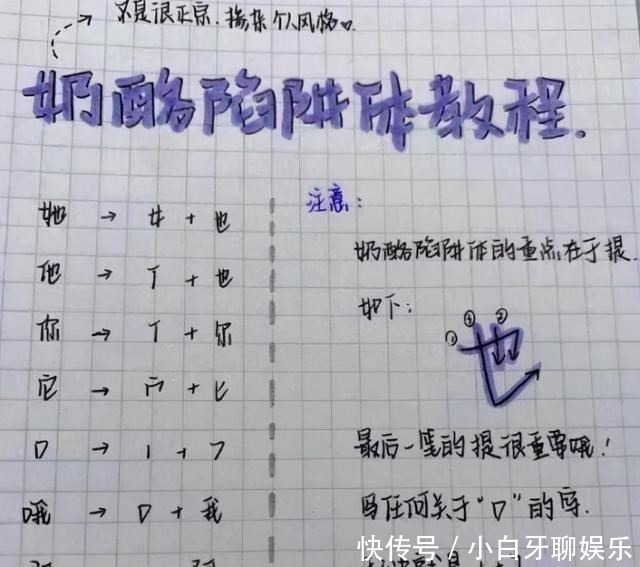 不是很正宗,掺杂个人风格
奶酪陷阱体教程.
她 → 女 + 也
他 → 亻 + 也
你 → 亻 + 尔
它 → 宀 + 匕
口 → 丨 + ㄱ
哦 → 口 + 我
注意:
奶酪陷阱体的重点在于提.
如下:
① ② ③
也
最后一笔的提很重要哦!
写任何关于“口”的字.
快传号 / 小白牙聊娱乐